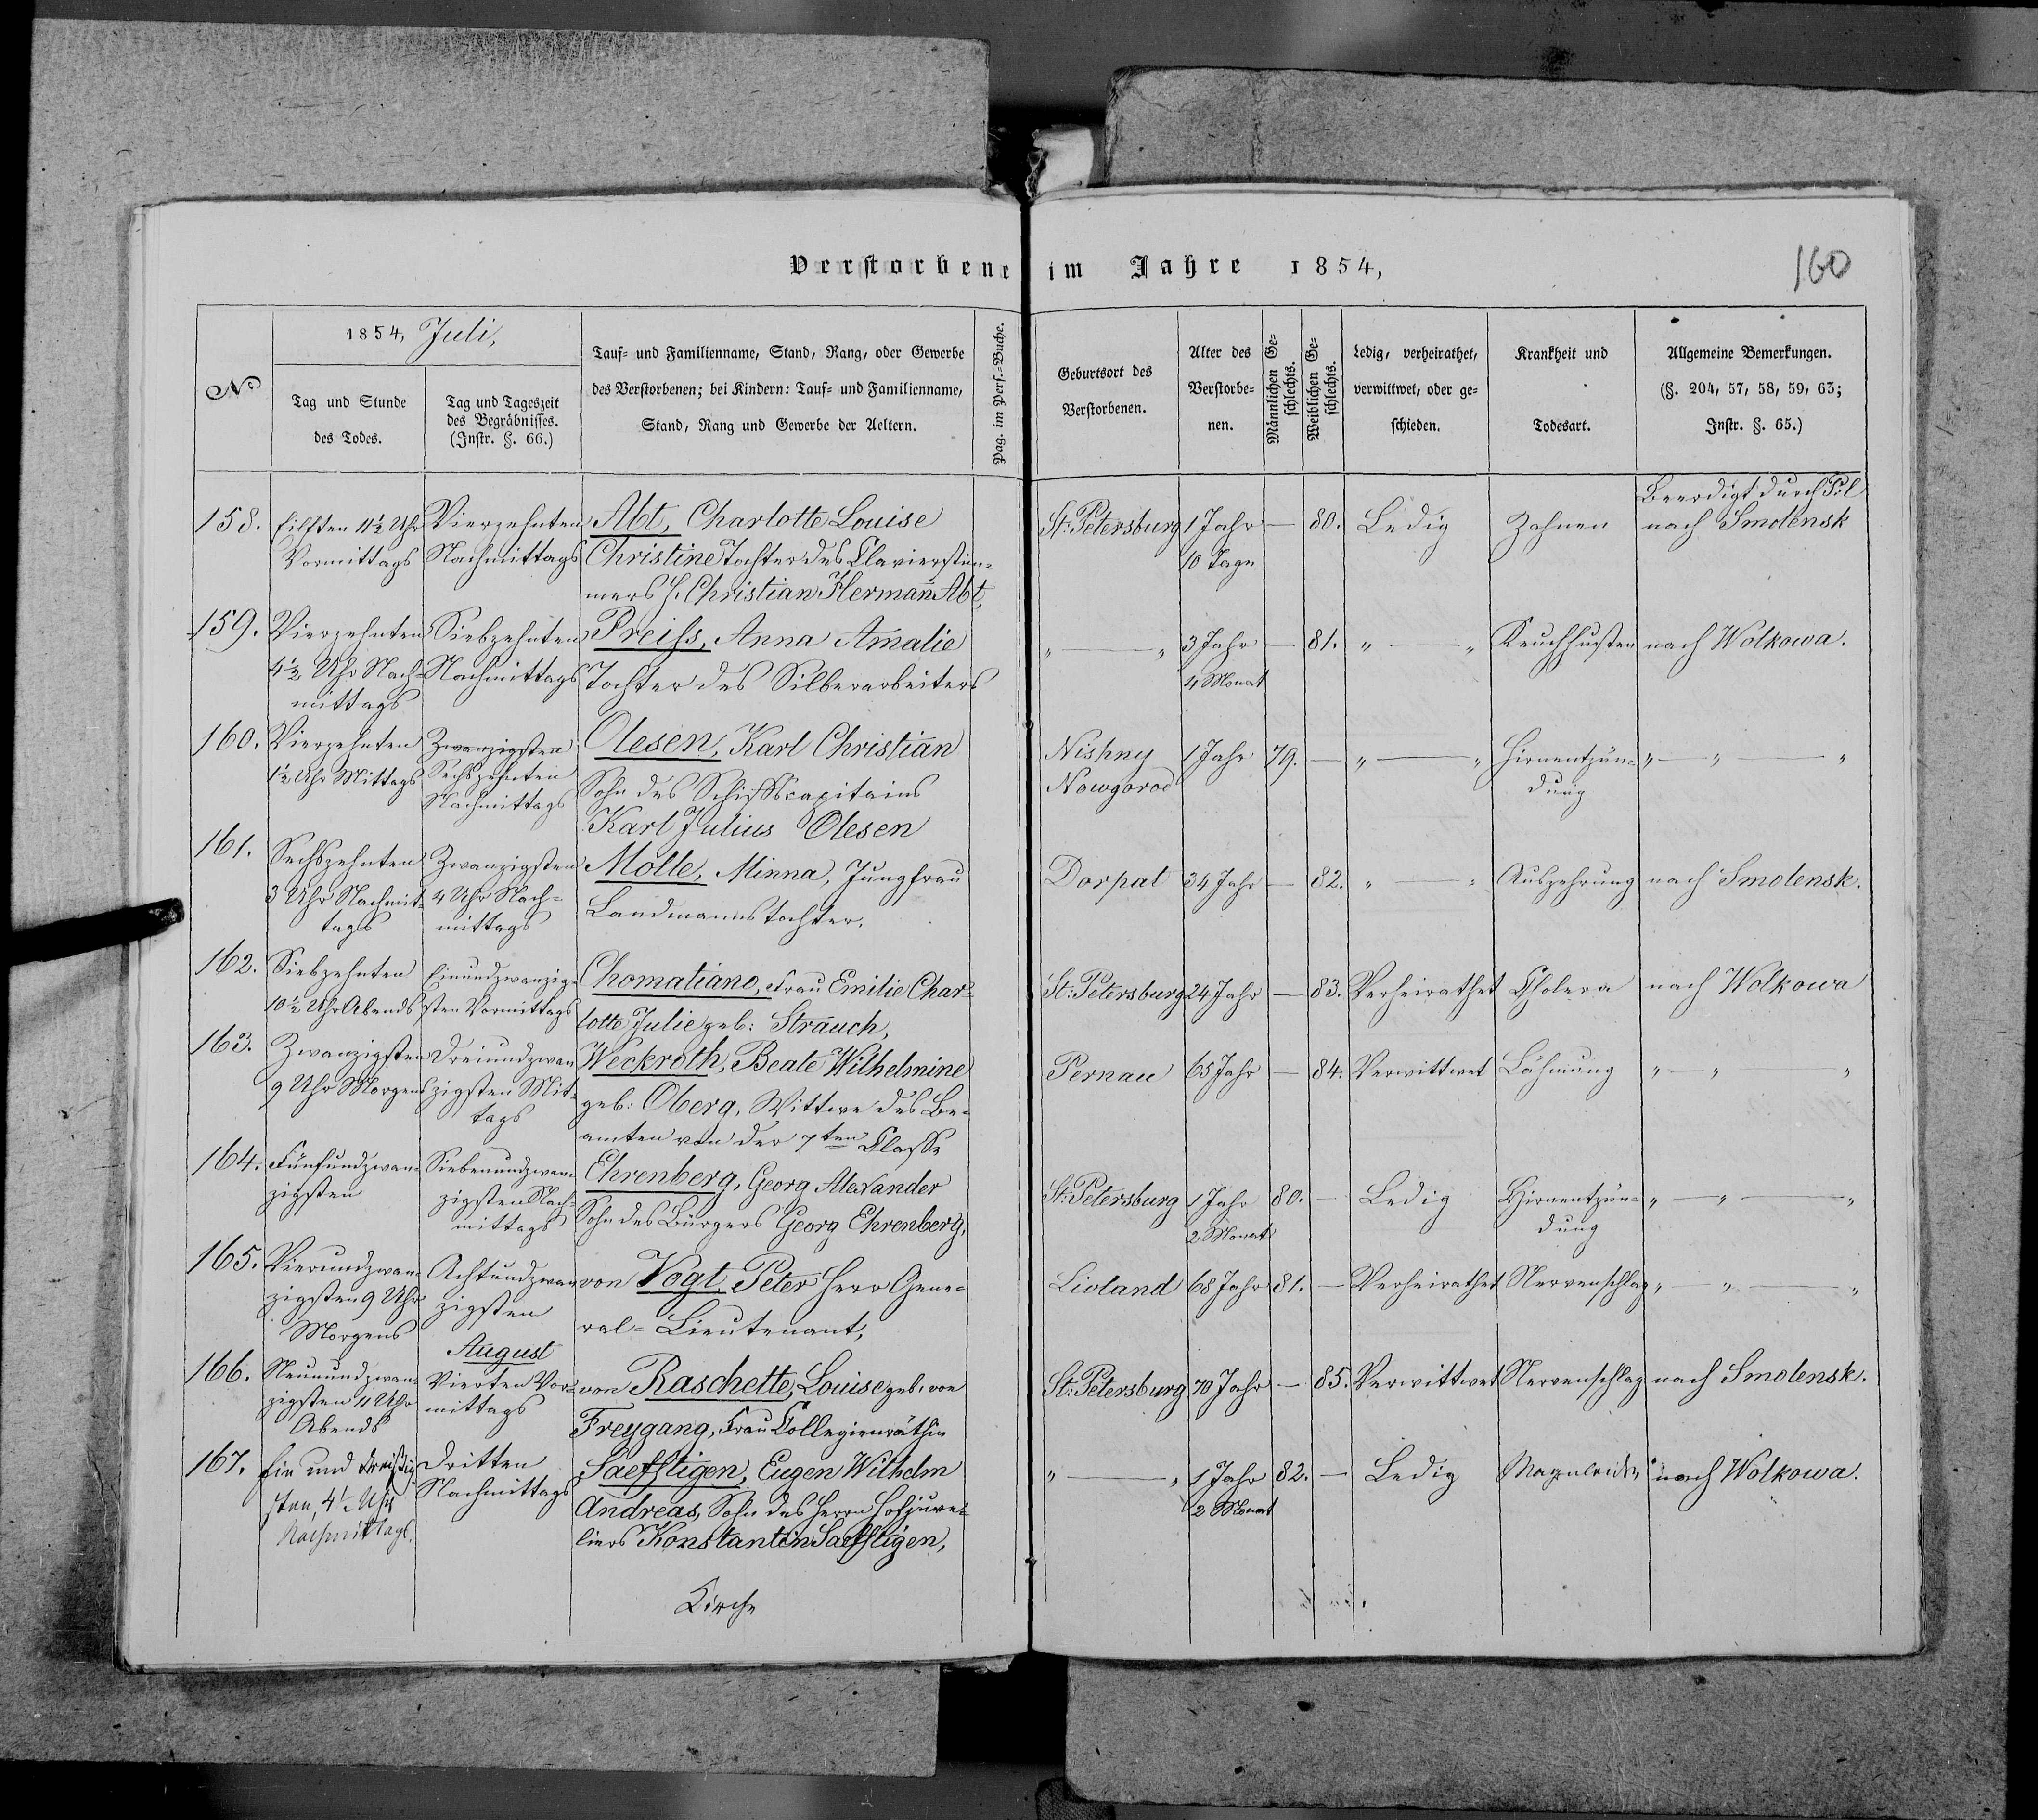 Verstorbene im Jahre 1854,
160
No
1854, Juli,
Tag und Stunde
des Todes.
Tag und Tageszeit
des Begräbnisses.
(Instr. §. 66.)
Tauf- und Familienname, Stand, Rang, oder Gewerbe
des Verstorbenen; bei Kindern: Tauf- und Familienname,
Stand, Rang und Gewerbe der Aeltern.
Pag. im Pers.-Buche.
Geburtsort des
Verstorbenen.
Alter des
Verstorbe-
nen.
Männlichen Ge-
schlechts.
Weiblichen Ge-
schlechts.
Ledig, verheirathet,
verwittwet, oder ge-
schieden.
Krankheit und
Todesart.
Allgemeine Bemerkungen.
(§. 204, 57, 58, 59, 63;
Instr. §. 65.)
158.
Eilften 11½ Uhr
Vormittags
Vierzehnten
Nachmittags
Abt, Charlotte Louise
Christine Tochter des Clavierstim-
mers H. Christian Herman̄ Abt,
St: Petersburg
1 Jahr
10 Tage
—
80.
Ledig
Zahnen
Beerdigt durch
nach Smolensk
159.
Vierzehnten
4½ Uhr Nach-
mittags
Siebzehnten
Nachmittags
Preiss, Anna Amalie
Tochter des Silberarbeiters
„ — „
3 Jahr
4 Monat
—
81.
„ — „
Keuchhusten
nach Wolkowa.
160.
Vierzehnten
1½ Uhr Mittags
Zwanzigsten
Sechszehnten
Nachmittags
Olesen, Karl Christian
Sohn des Schiffscapitains
Karl Julius Olesen
Nishny
Nowgorod
1 Jahr
79.
—
„ — „
Hirnentzün-
dung
„ — „ — „
161.
Sechszehnten
3 Uhr Nachmit-
tags
Zwanzigsten
4 Uhr Nach-
mittags
Molle, Minna, Jungfrau
Landmannstochter.
Dorpat
34 Jahr
—
82.
„ — „
Auszehrung
nach Smolensk.
162.
Siebzehnten
10½ Uhr Abends
Einundzwanzig-
sten Vormittags
Chomatiano, Frau Emilie Char-
lotte Julie geb: Strauch,
St: Petersburg
24 Jahr
—
83.
Verheirathet
Cholera
nach Wolkowa
163.
Zwanzigsten
9 Uhr Morgens
Dreiundzwan
zigsten Mit-
tags
Weckroth, Beate Wilhelmine
geb: Oberg, Wittwe des Be-
amten von der 7ten Classe
Pernau
65 Jahr
—
84.
Verwittwet
Lähmung
„ — „ „
164.
Fünfundzwan-
zigsten
Siebenundzwan-
zigsten Nach-
mittags
Ehrenberg, Georg Alexander
Sohn des Bürgers Georg Ehrenberg,
St: Petersburg
1 Jahr
2 Monat
80.
—
Ledig
Hirnentzün-
dung
„ — „ — „
165.
Vierundzwan-
zigsten 9 Uhr
Morgens
Achtundzwan
zigsten
von Vogt, Peter Herr Gene-
ral-Lieutenant,
Livland
68 Jahr
81.
—
Verheirathet
Nervenschlag
„ — „ — „
166.
Neunundzwan-
zigsten 11 Uhr
Abends
August
Vierten Vor-
mittags
von Raschette, Louise geb. von
Freygang, Frau Collegienräthin
St: Petersburg
70 Jahr
—
85.
Verwittwet
Nervenschlag
nach Smolensk.
167.
Ein und dreißig
sten, 4½ Uhr
Nachmittags.
Dritten
Nachmittags
Saefftigen, Eugen Wilhelm
Andreas, Sohn des Herrn Hofjuwe-
liers Konstantin Saefftigen,
„ — „
1 Jahr
2 Monat
82.
—
Ledig
Magenleiden
nach Wolkowa.
Kirche